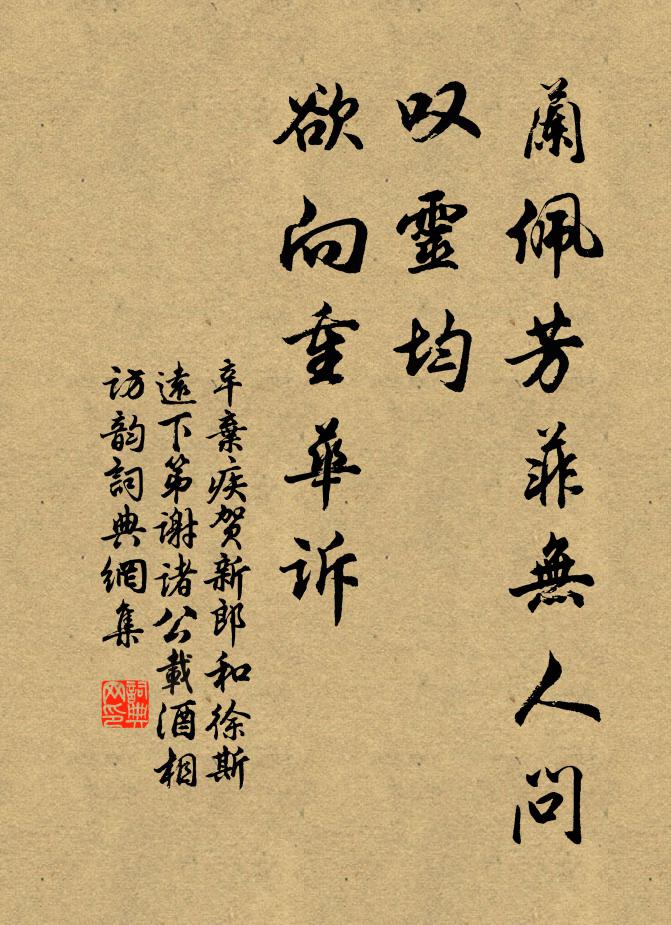 蘭佩芳菲無人問
叹靈均
欲向重華訴
辛棄疾贺新郎和徐斯
遠下第谢诸公載酒相
访韵詞典網集
詞典网印